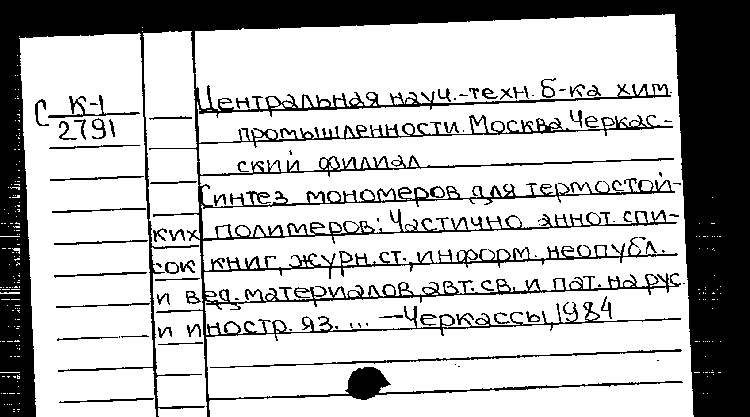 С К-1
2791
Центральная науч.-техн. б-ка хим.
промышленности. Москва. Черкас-
ский филиал.
Синтез мономеров для термостой-
ких полимеров: Частично аннот. спи-
сок книг, журн. ст., информ., неопубл.
и вед. материалов, авт. св. и пат. на рус.
и иностр. яз. ... — Черкассы, 1984